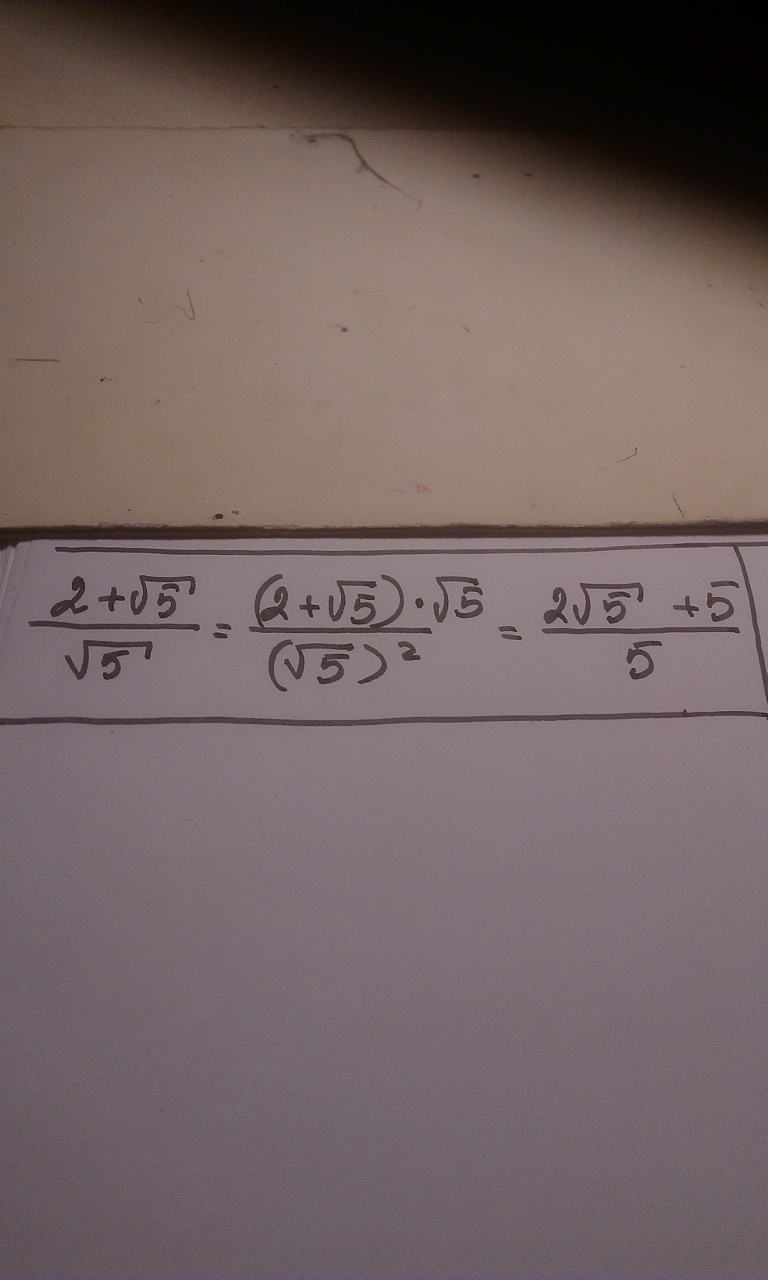 (2+√5)/√5 = ((2+√5)·√5)/(√5)² = (2√5+5)/5